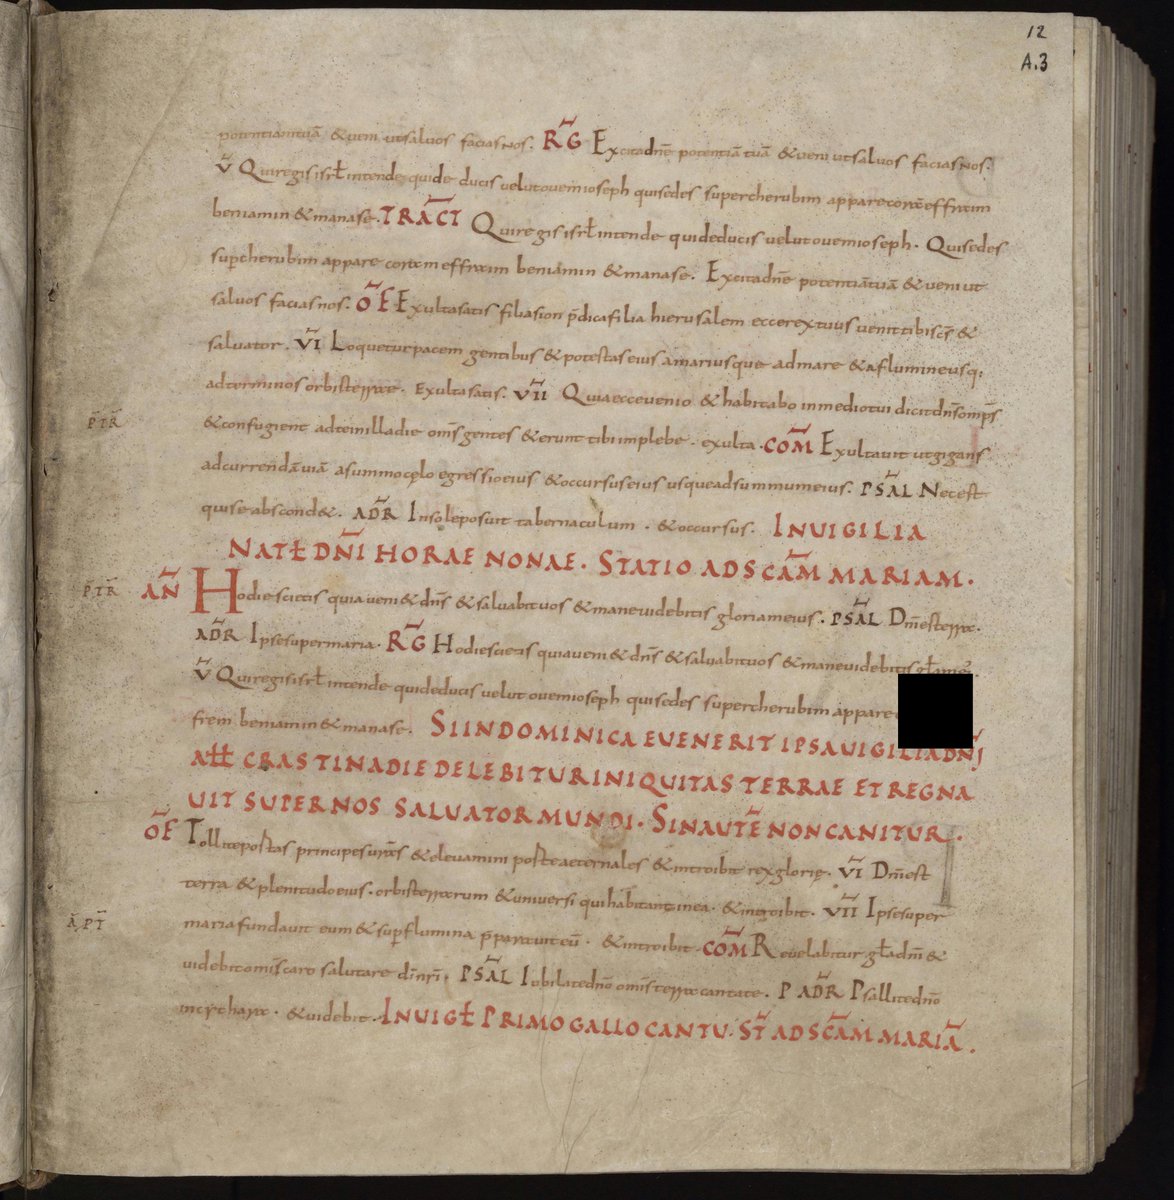 12
A.3
potentiam tuā & veni ut salvos facias nos. R̄G Excita dn̄e potentiā tuā & veni ut salvos facias nos.
V̄ Qui regis isrł intende qui deducis velut ovem ioseph qui sedes super cherubim appare corā effraim
beniamin & manase. TRAC̄T Qui regis isrł intende qui deducis velut ovem ioseph. Qui sedes
sup̄ cherubim appare coram effraim beniamin & manase. Excita dn̄e potentiā tuā & veni ut
salvos facias nos. ŌF Exulta satis filia sion p̄dica filia hierusalem ecce rex tuus venit tibi sc̄s &
salvator. V̄I Loquetur pacem gentibus & potestas eius a mari usque ad mare & a flumine usq;
ad terminos orbis terrae. Exulta satis. V̄II Quia ecce venio & habitabo in medio tui dicit dn̄s omp̄s
P̄TR̄ & confugient ad te in illa die om̄s gentes & erunt tibi in plebe. exulta. COM̄ Exultavit ut gigans
ad currendā viā a summo cęlo egressio eius & occursus eius usque ad summum eius. PS̄AL Nec est
qui se abscond&. AD̄R In sole posuit tabernaculum. & occursus. IN UIGILIA
NATŁ DN̄I HORAE NONAE. STATIO AD SCAM̄ MARIAM.
P̄TR̄ AN̄ Hodie scietis quia veni& dn̄s & salvabit vos & mane videbitis gloriam eius. PS̄AL Dn̄i est terra.
AD̄R Ipse super maria. R̄G Hodie scietis quia veni& dn̄s & salvabit vos & mane videbitis gła
V̄ Qui regis isrł intende qui deducis velut ovem ioseph qui sedes super cherubim appare
frem beniamin & manase. SI IN DOMINICA EVENERIT IPSA UIGILIA DN̄I
AŁŁ CRASTINA DIE DELEBITUR INIQUITAS TERRAE ET REGNA
UIT SUPER NOS SALUATOR MUNDI. SIN AUTĒ NON CANITUR.
ŌF Tollite portas principes vr̄as & elevamini portae aeternales & introibit rex glorię. V̄I Dn̄i est
terra & plenitudo eius. orbis terrarum & universi qui habitant in ea. & introibit. V̄II Ipse super
Ā, PT̄ maria fundavit eum & sup̄ flumina p̄paravit eū. & introibit. COM̄ Revelabitur gła dn̄i &
videbit omīs caro salutare dī nr̄i. PS̄AL Iubilate dn̄o omīs terra cantate. P AD̄R Psallite dn̄o
in cythara. & videbit. IN UIGŁ PRIMO GALLO CANTU. ST̄ AD SCAM̄ MARIĀ.